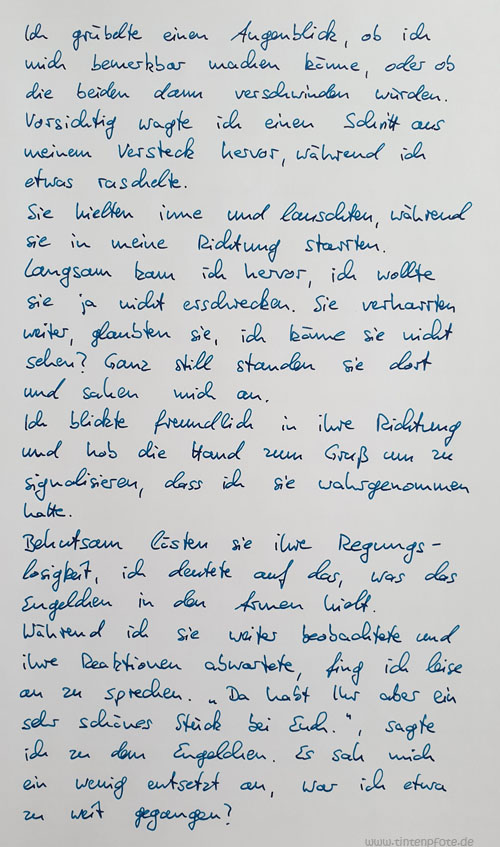 Ich grübelte einen Augenblick, ob ich
mich bemerkbar machen könne, oder ob
die beiden dann verschwinden würden.
Vorsichtig wagte ich einen Schritt aus
meinem Versteck hervor, während ich
etwas raschelte.
Sie hielten inne und lauschten, während
sie in meine Richtung starrten.
Langsam kam ich hervor, ich wollte
sie ja nicht erschrecken. Sie verharrten
weiter, glaubten sie, ich könne sie nicht
sehen? Ganz still standen sie dort
und sahen mich an.
Ich blickte freundlich in ihre Richtung
und hob die Hand zum Gruß um zu
signalisieren, dass ich sie wahrgenommen
hatte.
Behutsam lösten sie ihre Regungs-
losigkeit, ich deutete auf das, was das
Engelchen in den Armen hielt.
Während ich sie weiter beobachtete und
ihre Reaktionen abwartete, fing ich leise
an zu sprechen. „Da habt Ihr aber ein
sehr schönes Stück bei Euch.", sagte
ich zu dem Engelchen. Es sah mich
ein wenig entsetzt an, war ich etwa
zu weit gegangen?
www.tintenpfote.de